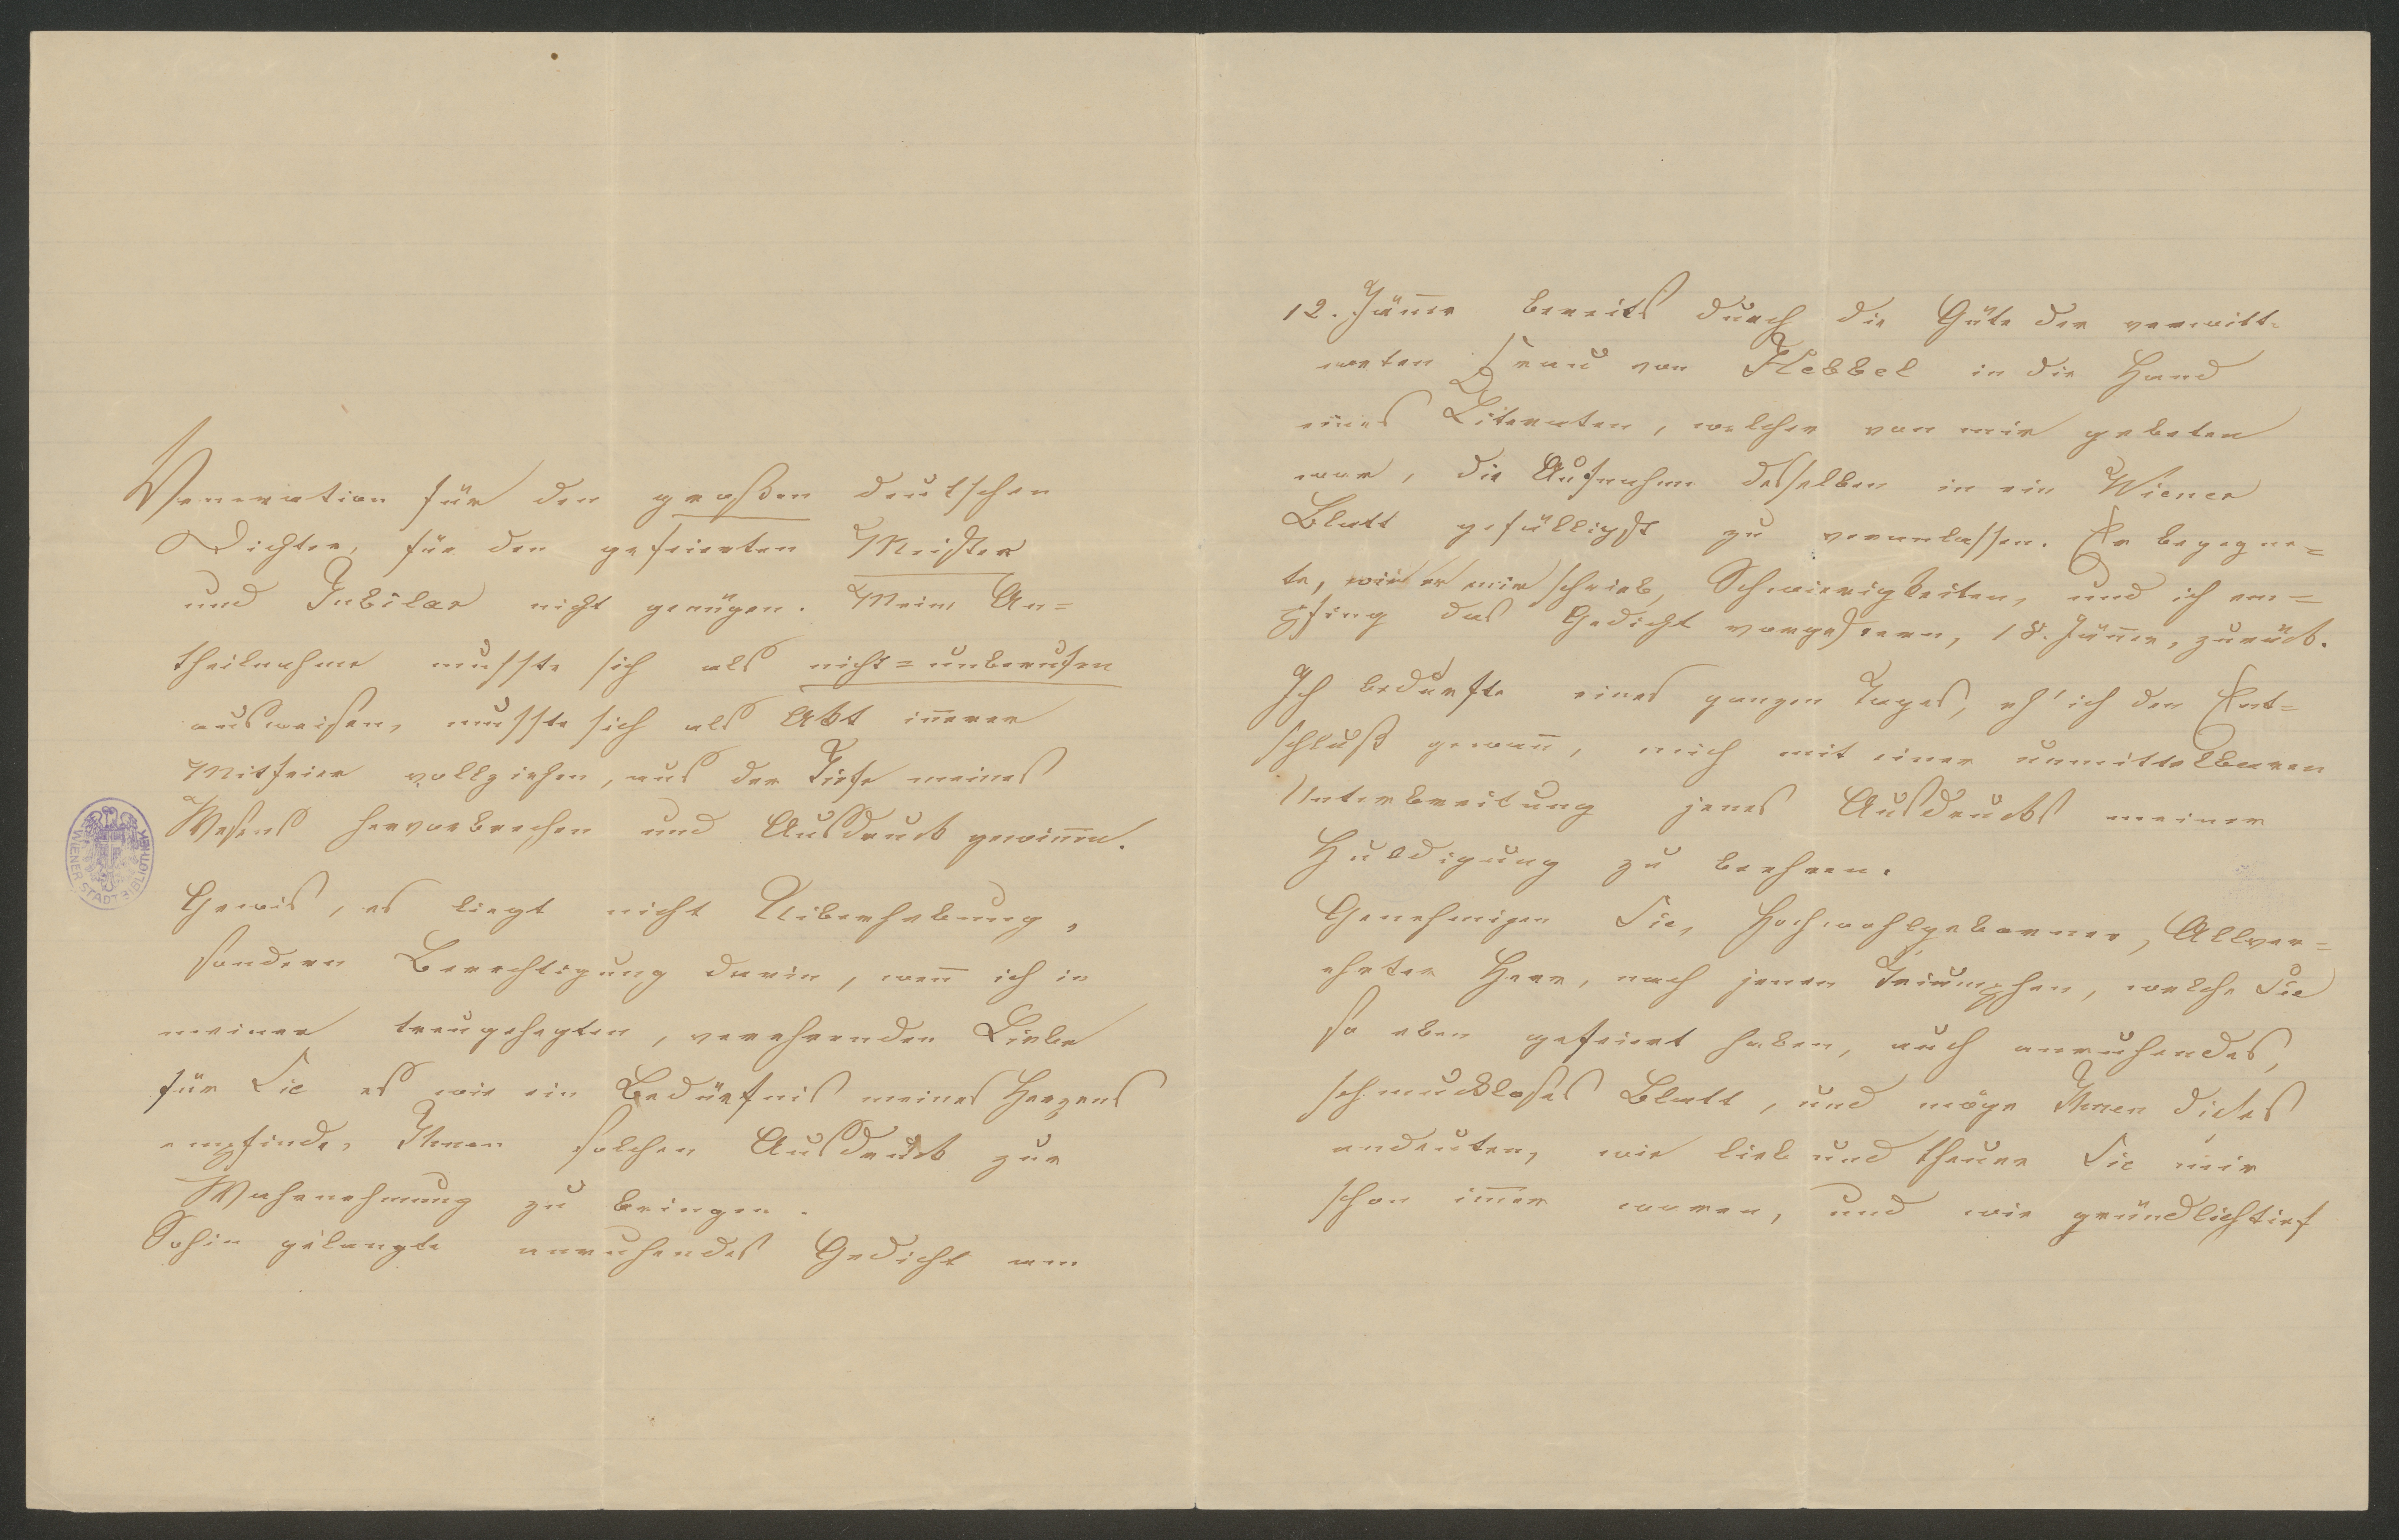 Veneration für den großen deutschen
Dichter, für den gefeierten Meister
und Jubilar nicht genügen. Meine An=
theilnahme musste sich als nicht=unberufen
ausweisen, musste sich als Akt inerer
Mitfeier vollziehen, aus der Tiefe meines
Wesens hervorbrechen und Ausdruck gewinen.
Gewis, es liegt nicht Uiberhebung,
sondern Berechtigung darin, wen ich in
meiner treugehegten, verehrenden Liebe
für Sie es wie ein Bedürfnis meines Herzens
empfinde, Ihnen solchen Ausdruck zur
Wahrnehmung zu bringen.
Sohin gelangte anruhendes Gedicht am
WIENER STADTBIBLIOTHEK
12. Jäner bereits durch die Güte der verwitt=
weten Frau von Hebbel in die Hand
eines Literaten, welcher von mir gebeten
war, die Aufnahme desselben in ein Wiener
Blatt gefälligst zu veranlassen. Er begegne=
te, wie er mir schrieb, Schwierigkeiten, und ich em=
pfing das Gedicht vorgestern, 18. Jäner, zurück.
Ich bedurfte eines ganzen Tages, eh' ich den Ent=
schluß gewan, mich mit einer unmittelbaren
Unterbreitung jenes Ausdrucks meiner
Huldigung zu beehren.
Genehmigen Sie, Hochwohlgeborner, Allver=
ehrter Herr, nach jenen Triumphen, welche Sie
so eben gefeiert haben, auch anruhendes,
schmuckloses Blatt, und möge Ihnen dieses
andeuten, wie lieb und theuer Sie mir
schon imer waren, und wie gründlichtief